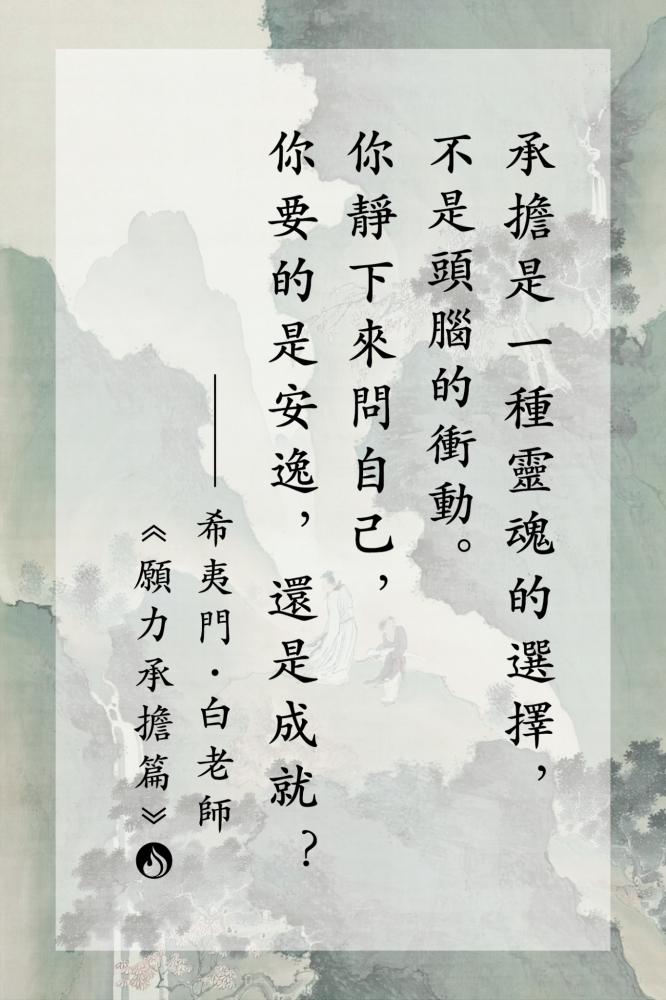 承擔是一種靈魂的選擇，
不是頭腦的衝動。
你靜下來問自己，
你要的是安逸，還是成就？
——希夷門·白老師
《願力承擔篇》